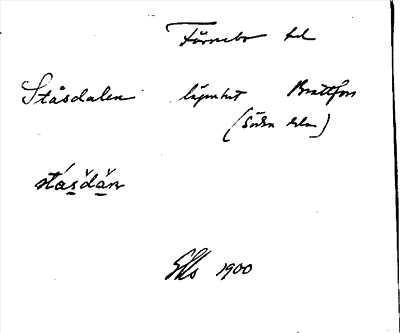 Färnebo hd
Ståsdalen lägenhet Brattfors
(Södra delen)
ståsdàn
1900